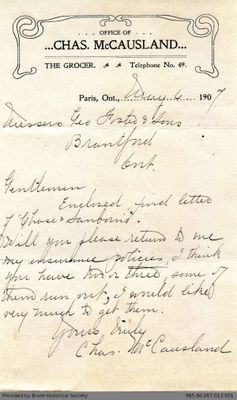 OFFICE OF
...CHAS. McCAUSLAND...
THE GROCER.
Telephone No. 49.
Paris, Ont., May 6 1907
Messers Geo Foster & Sons
Brantford
Ont.
Gentlemen
Enclosed find letter
of "Chase & Sanborns".
Will you please return to me
my insurance policies, I think
you have two or three, some of
them run out, I would like
very much to get them.
Yours truly
Chas. McCausland
Provided by Brant Historical Society
985.86.067.013.001